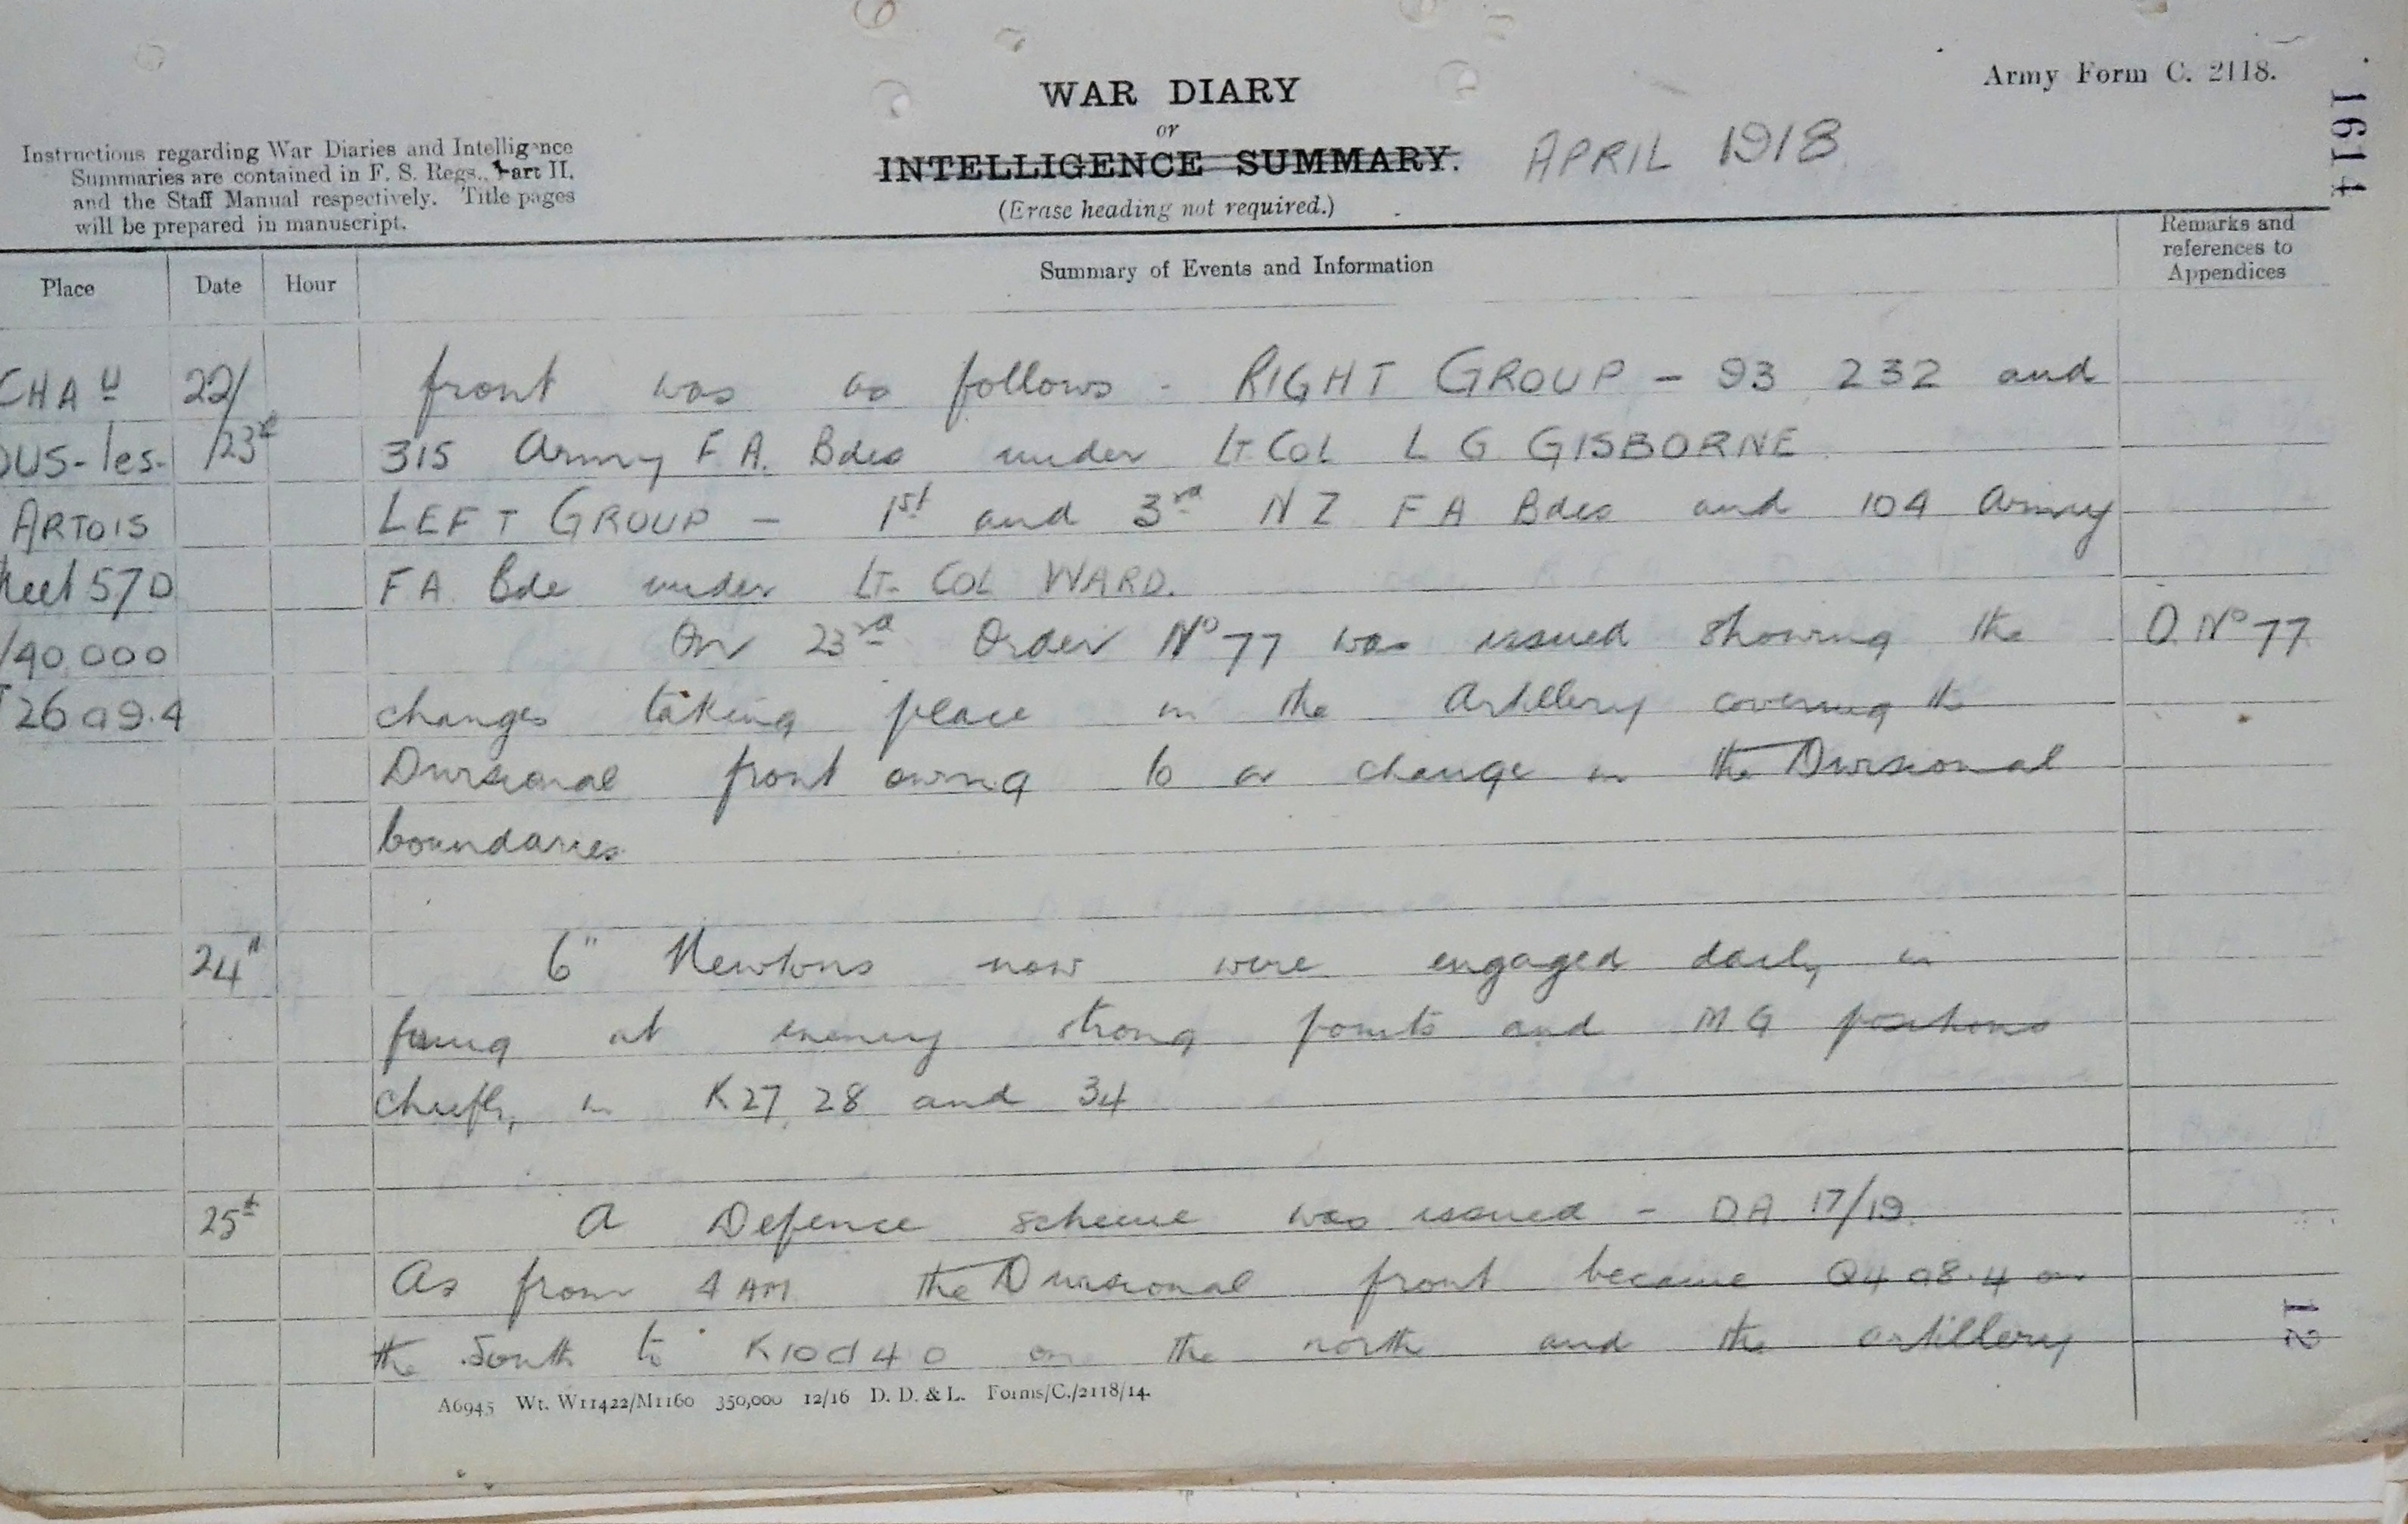 Army Form C. 2118.
1614
WAR DIARY
or
INTELLIGENCE SUMMARY.
APRIL 1918
(Erase heading not required.)
Instructions regarding War Diaries and Intelligence
Summaries are contained in F. S. Regs., Part II.
and the Staff Manual respectively. Title pages
will be prepared in manuscript.
Place Date Hour Summary of Events and Information Remarks and
references to
Appendices
CHAU 22/ front was as follows - RIGHT GROUP - 93 232 and
OUS-les- /23rd 315 Army F A. Bdes under LT COL L G GISBORNE
ARTOIS LEFT GROUP - 1st and 3rd N Z F A Bdes and 104 Army
heet 57D F A. Bde under LT- COL WARD.
/40,000 On 23rd Order No 77 was issued showing the O. No 77
26 a 9.4 changes taking place in the Artillery covering the
Divisional front owing to a change in the Divisional
boundaries
24th 6" Newtons now were engaged daily in
firing at enemy strong points and M G positions
chiefly in K27, 28 and 34
25th A Defence scheme was issued - DA 17/19.
As from 4 AM the Divisional front became Q4 a 8.4 on
the South to K10d 4 0 on the north and the artillery
12
A6945 Wt. W11422/M1160 350,000 12/16 D. D. & L. Forms/C./2118/14.